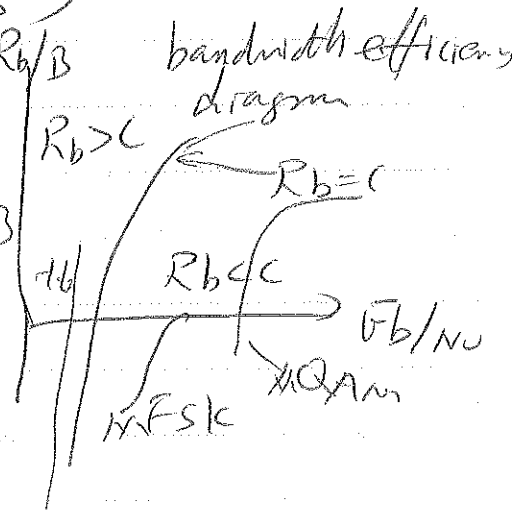 Rb/B
bandwidth efficiency
diagram
Rb>C
Rb=C
Rb<C
Eb/No
MQAM
MFSK